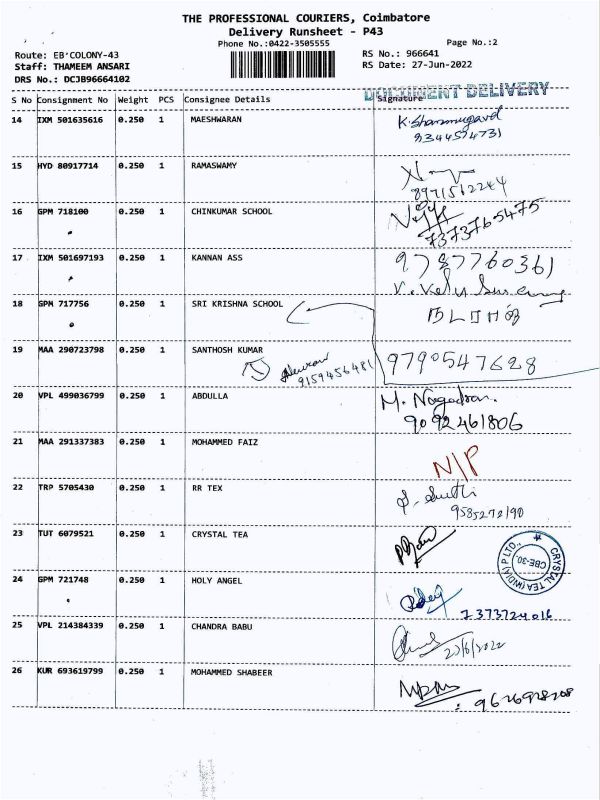 THE PROFESSIONAL COURIERS, Coimbatore
Delivery Runsheet - P43
Phone No.:0422-3505555
Page No.:2
Route: EB'COLONY-43
RS No.: 966641
Staff: THAMEEM ANSARI
RS Date: 27-Jun-2022
DRS No.: DCJB96664102
DOCUMENT DELIVERY
S No Consignment No Weight PCS Consignee Details Signature
14 IXM 501635616 0.250 1 MAESHWARAN
15 HYD 80917714 0.250 1 RAMASWAMY
8971512244
16 GPM 718100 0.250 1 CHINKUMAR SCHOOL
7373765475
17 IXM 501697193 0.250 1 KANNAN ASS 9787760361
18 GPM 717756 0.250 1 SRI KRISHNA SCHOOL
19 MAA 290723798 0.250 1 SANTHOSH KUMAR 9790547628
9159456481
20 VPL 499036799 0.250 1 ABDULLA M.
9092461806
21 MAA 291337383 0.250 1 MOHAMMED FAIZ
N/P
22 TRP 5705430 0.250 1 RR TEX
9585272190
23 TUT 6079521 0.250 1 CRYSTAL TEA
CRYSTAL TEA (INDIA) P LTD.,
CBE-30
24 GPM 721748 0.250 1 HOLY ANGEL
7373724016
25 VPL 214384339 0.250 1 CHANDRA BABU
26 KUR 693619799 0.250 1 MOHAMMED SHABEER